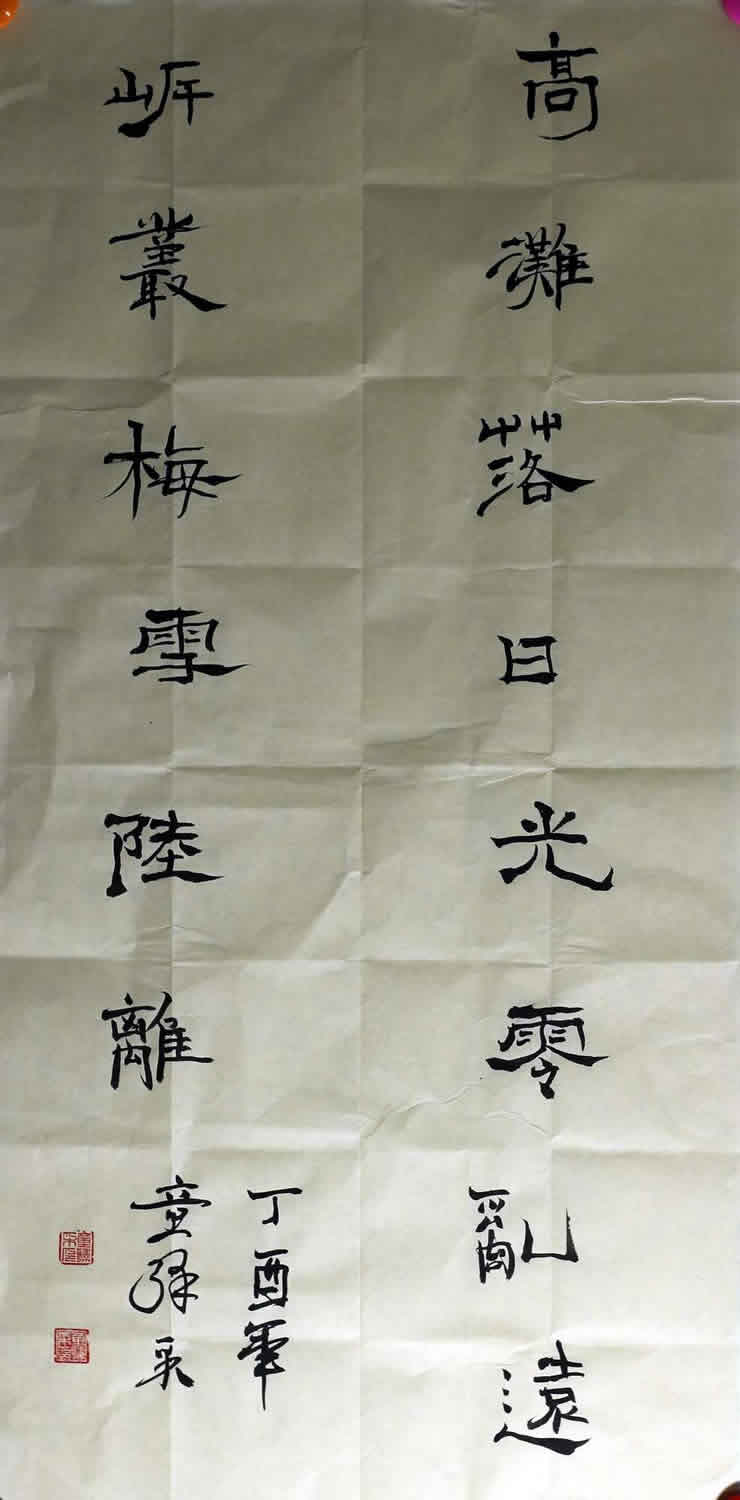 高灘落日光零亂遠
岸叢梅雪陸離
丁酉年
童